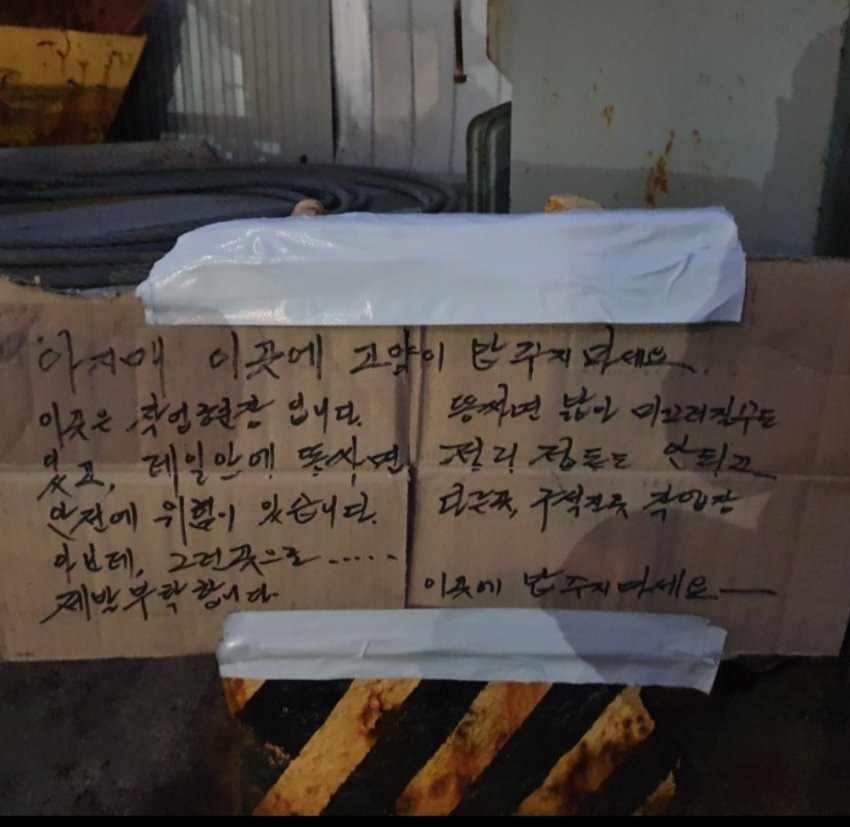 아지매 이곳에 고양이 밥 주지 마세요.
이곳은 작업현장 입니다. 똥싸면 밟아 미끄러질수도
있고, 레일안에 똥싸면, 정리 정돈도 안되고
안전에 위험이 있습니다. 다른곳, 구석진곳 작업장
아닌데, 그런곳으로 .....
제발부탁합니다 이곳에 밥주지마세요—